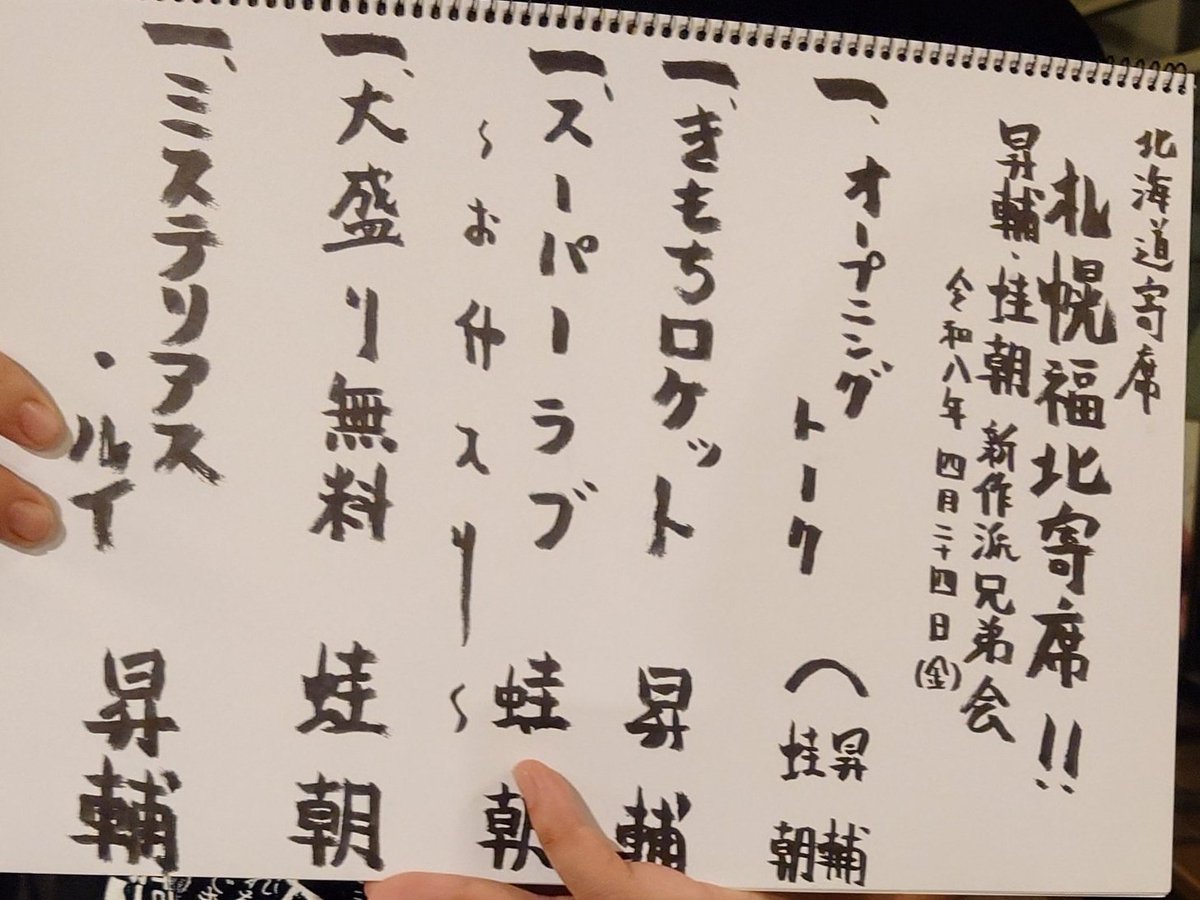 北海道寄席
札幌福北寄席!!
昇輔・蛙朝 新作派兄弟会
令和八年 四月二十四日(金)
一、オープニング
トーク
昇輔
蛙朝
一、きもちロケット 昇輔
一、スーパーラブ 蛙朝
〜お仕スリー〜
一、大盛り無料 蛙朝
一、ミステリアス
・ルイ 昇輔